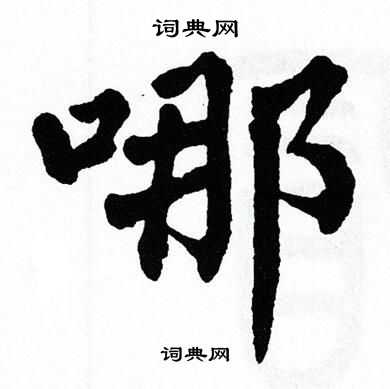 词典网
哪
词典网